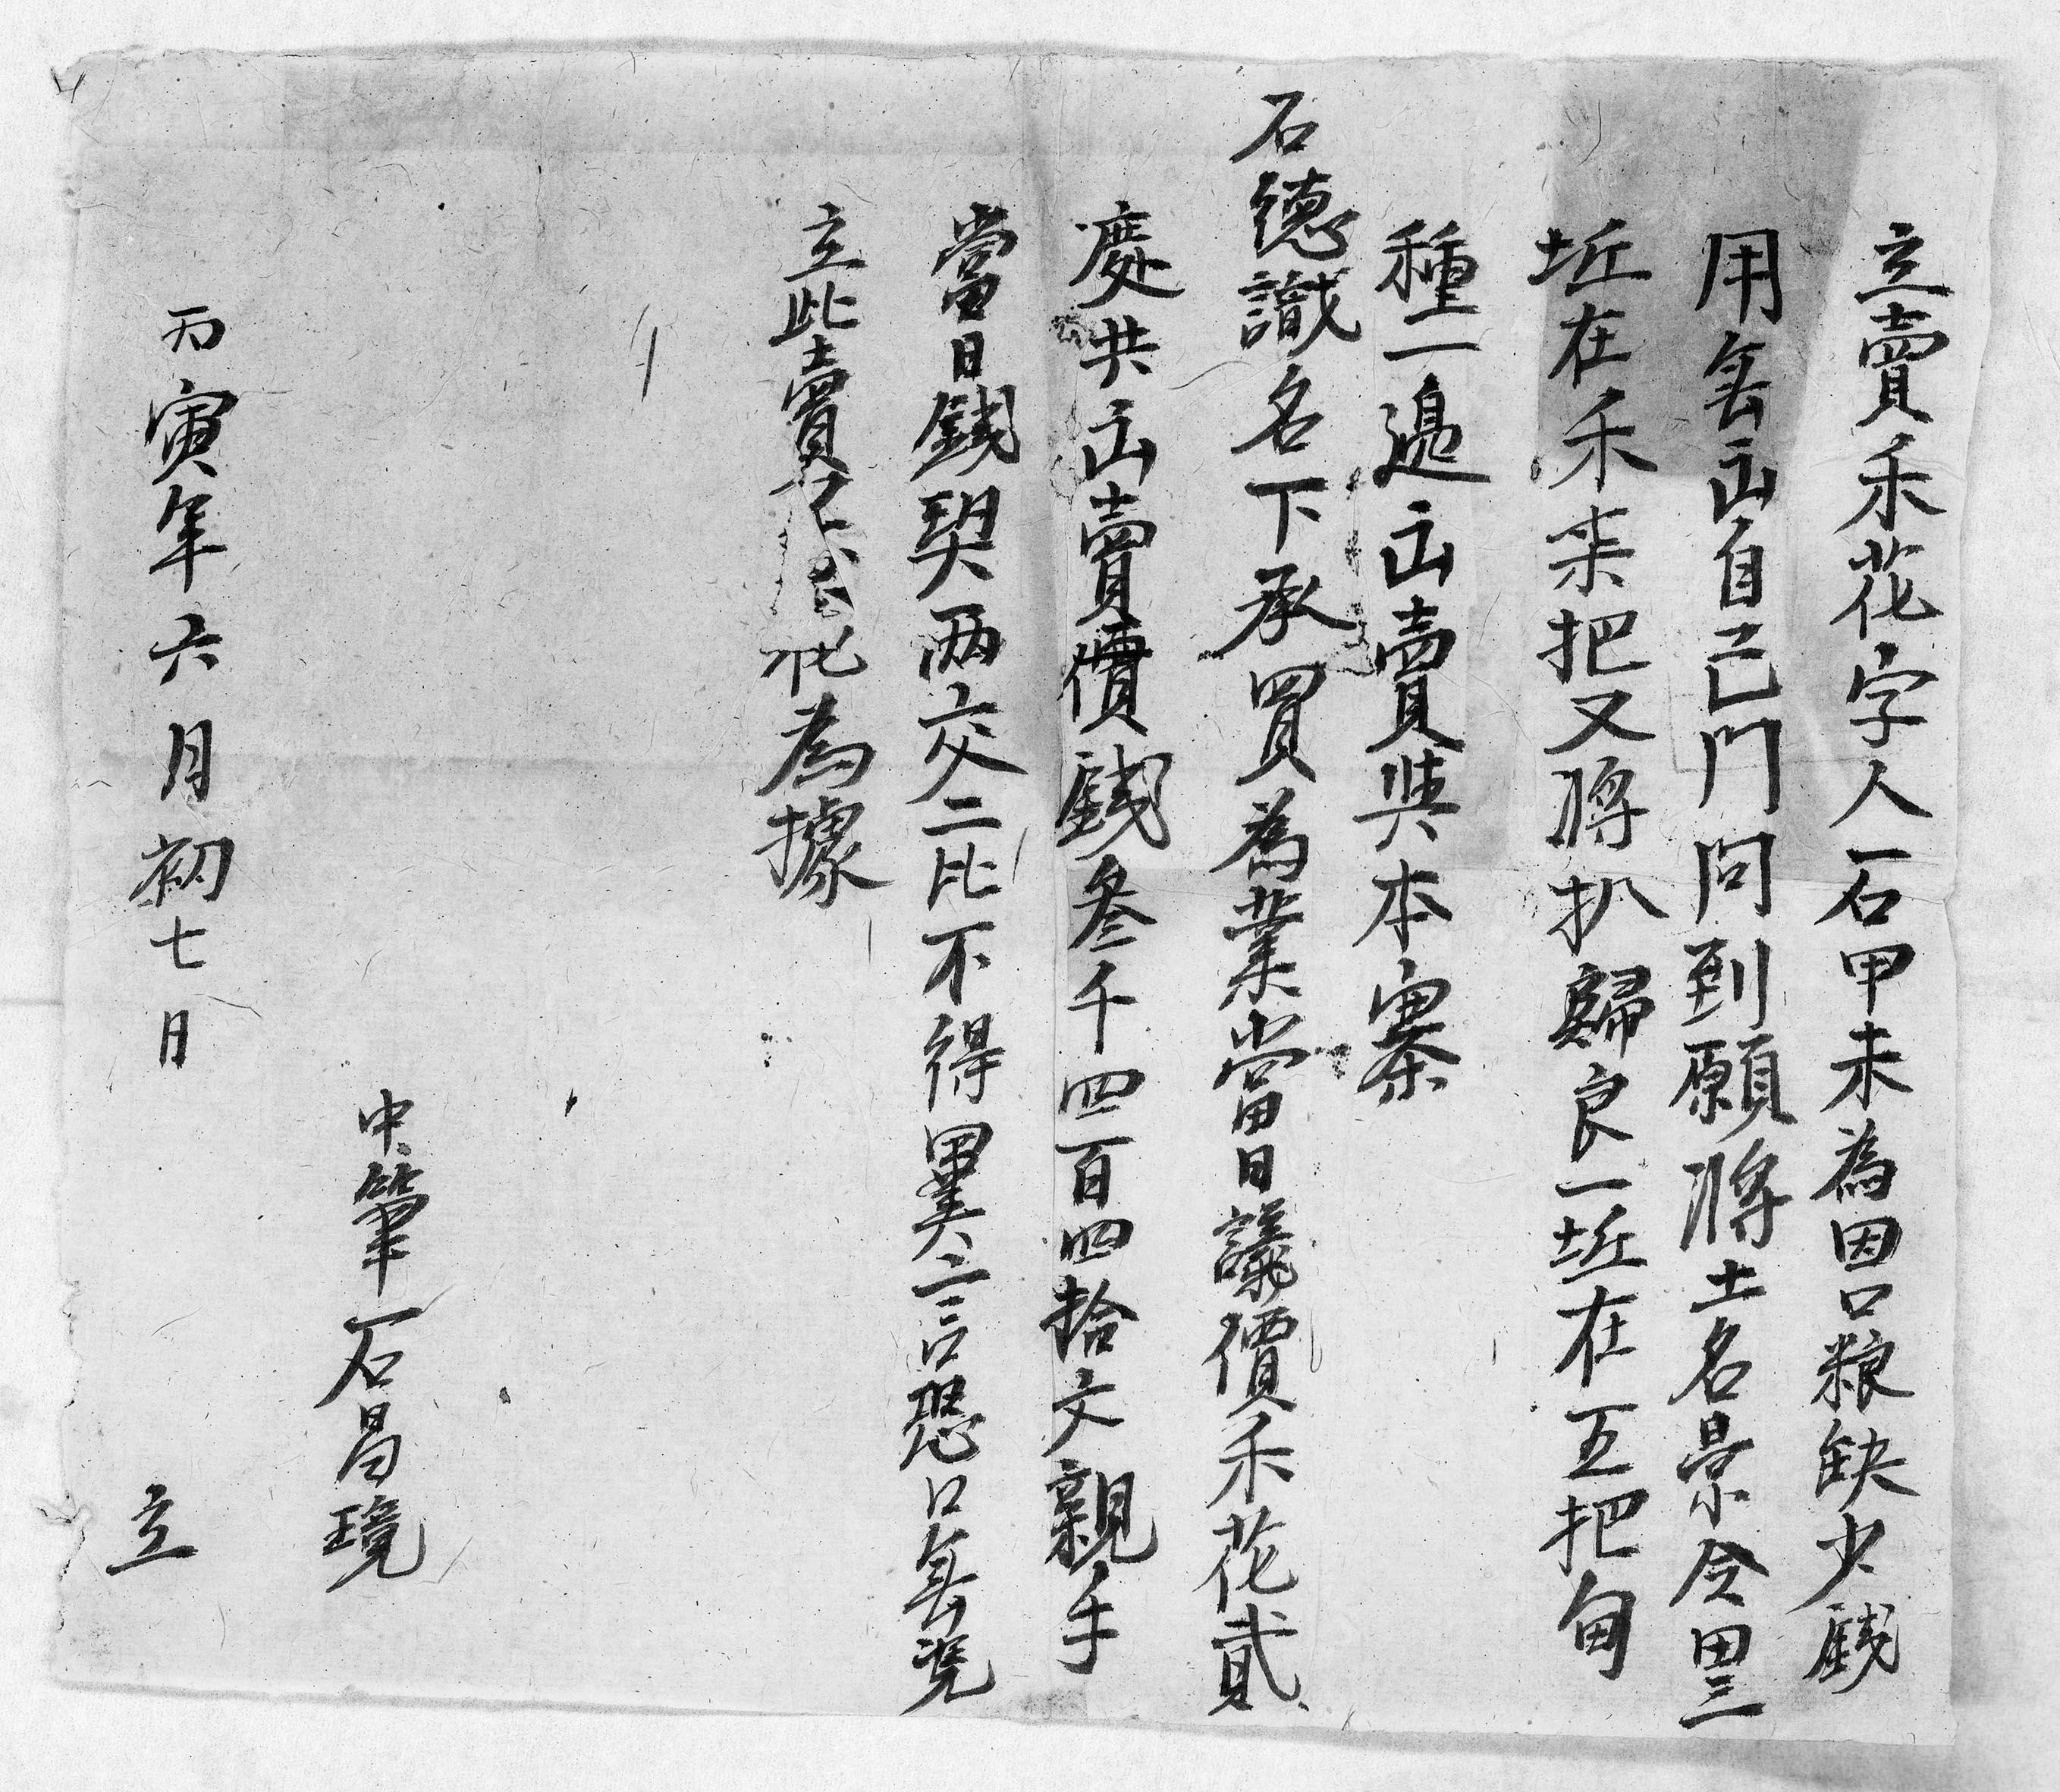 立賣禾花字人石甲未為因口粮缺少錢
用無出自己門問到願將土名景令田三
坵在禾来把又將扒歸良一坵在五把甸
種一邉出賣與本寨
石德識名下承買為業當日議價禾花貳
處共出賣價錢叁千四百四拾文親手
當日錢契两交二比不得異言恐口無凴
立此賣禾花為據
中筆石昌璄
丙寅年六月初七日 立